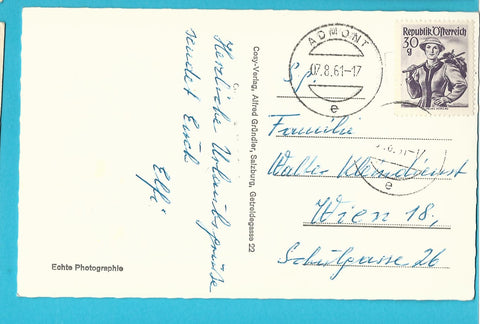 Herzliche Urlaubsgrüße
sendet Euch
Elfi
Echte Photographie
Cosy-Verlag, Alfred Gründler, Salzburg, Getreidegasse 22
ADMONT
07.8.61-17
e
Republik Österreich
30
g
Familie
Walter
Wien 18,
Schulgasse 26
e